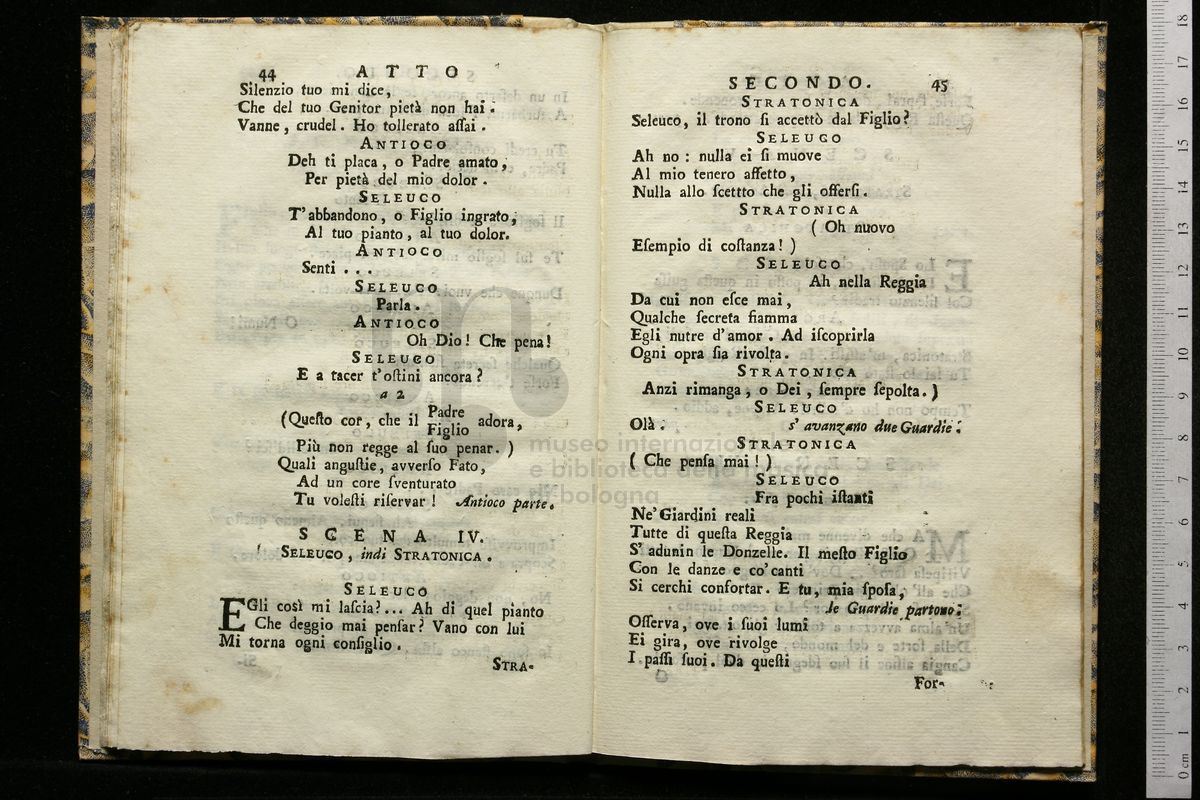 44 ATTO
Silenzio tuo mi dice,
Che del tuo Genitor pietà non hai.
Vanne, crudel. Ho tollerato aſſai.
ANTIOCO
Deh ti placa, o Padre amato,
Per pietà del mio dolor.
SELEUCO
T'abbandono, o Figlio ingrato,
Al tuo pianto, al tuo dolor.
ANTIOCO
Senti...
SELEUCO
Parla.
ANTIOCO
Oh Dio! Che pena!
SELEUCO
E a tacer t'oſtini ancora?
a 2
(Queſto cor, che il Padre
Figlio adora,
Più non regge al ſuo penar.)
Quali anguſtie, avverſo Fato,
Ad un core ſventurato
Tu voleſti riſervar! Antioco parte.
SCENA IV.
SELEUCO, indi STRATONICA.
SELEUCO
EGli così mi laſcia?... Ah di quel pianto
Che deggio mai penſar? Vano con lui
Mi torna ogni conſiglio.
STRA-
SECONDO. 45
STRATONICA
Seleuco, il trono ſi accettò dal Figlio?
SELEUCO
Ah no: nulla ei ſi muove
Al mio tenero affetto,
Nulla allo ſcettto che gli offerſi.
STRATONICA
(Oh nuovo
Eſempio di coſtanza!)
SELEUCO
Ah nella Reggia
Da cui non eſce mai,
Qualche ſecreta fiamma
Egli nutre d'amor. Ad iſcoprirla
Ogni opra ſia rivolta.
STRATONICA
Anzi rimanga, o Dei, ſempre ſepolta.)
SELEUCO
Olà. s'avanzano due Guardie.
STRATONICA
(Che penſa mai!)
SELEUCO
Fra pochi iſtanti
Ne'Giardini reali
Tutte di queſta Reggia
S'adunin le Donzelle. Il meſto Figlio
Con le danze e co'canti
Si cerchi confortar. E tu, mia ſpoſa,
le Guardie partono.
Oſſerva, ove i ſuoi lumi
Ei gira, ove rivolge
I paſſi ſuoi. Da queſti
For-
museo internazio
e biblioteca della musica
bologna